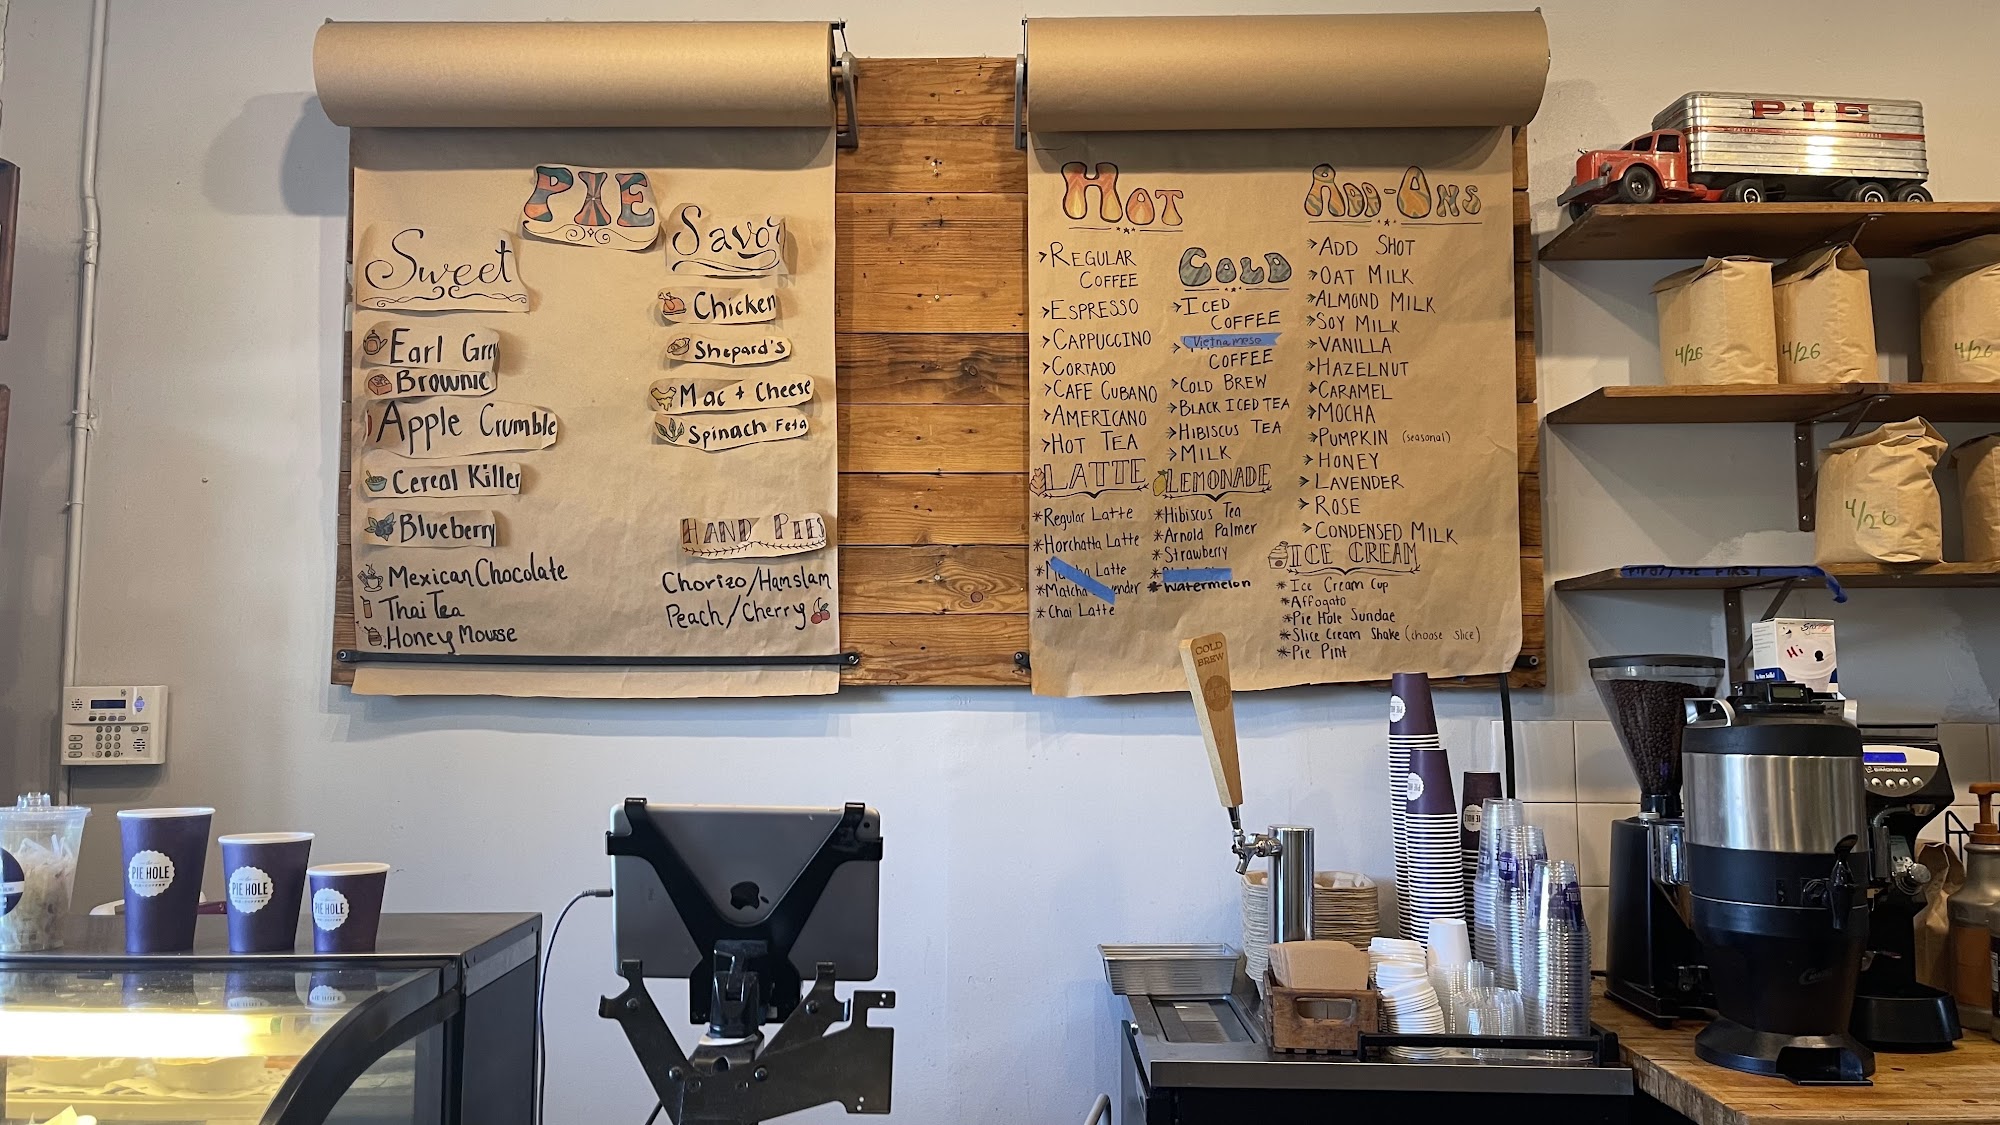 PIE
Sweet
Earl Grey
Brownie
Apple Crumble
Cereal Killer
Blueberry
Mexican Chocolate
Thai Tea
Honey Mousse
Savor
Chicken
Shepard's
Mac + Cheese
Spinach Feta
HAND PIES
Chorizo/Hamslam
Peach/Cherry
HOT
REGULAR
COFFEE
ESPRESSO
CAPPUCCINO
CORTADO
CAFE CUBANO
AMERICANO
HOT TEA
LATTE
*Regular Latte
*Horchatta Latte
*Matcha Latte
*Matcha
*Chai Latte
COLD
ICED
COFFEE
Vietnamese
COFFEE
COLD BREW
BLACK ICED TEA
HIBISCUS TEA
MILK
LEMONADE
*Hibiscus Tea
*Arnold Palmer
*Strawberry
*Watermelon
ADD-ONS
ADD SHOT
OAT MILK
ALMOND MILK
SOY MILK
VANILLA
HAZELNUT
CARAMEL
MOCHA
PUMPKIN (seasonal)
HONEY
LAVENDER
ROSE
CONDENSED MILK
ICE CREAM
*Ice Cream Cup
*Affogato
*Pie Hole Sundae
*Slice Cream Shake (choose slice)
*Pie Pint
PIE
PACIFIC EXPRESS
4/26
4/26
4/26
4/26
Hi
COLD
BREW
SIMONELLI
PIE HOLE
PIE HOLE
PIE HOLE